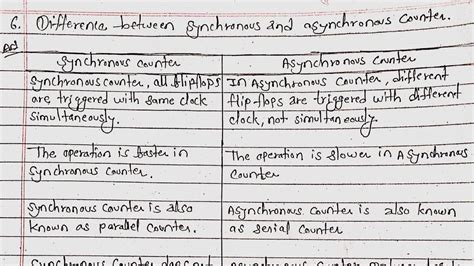 6. Difference between synchronous and asynchronous counter.
Ans
Synchronous counter
Asynchronous Counter
Synchronous counter, all flipflops
are triggered with same clock
simultaneously.
In Asynchronous Counter, different
flip-flops are triggered with different
clock, not simultaneously.
The operation is faster in
Synchronous counter.
The operation is slower in Asynchronous
Counter
Synchronous Counter is also
known as parallel Counter.
Asynchronous Counter is also known
as serial Counter
Synchronous Counter does not